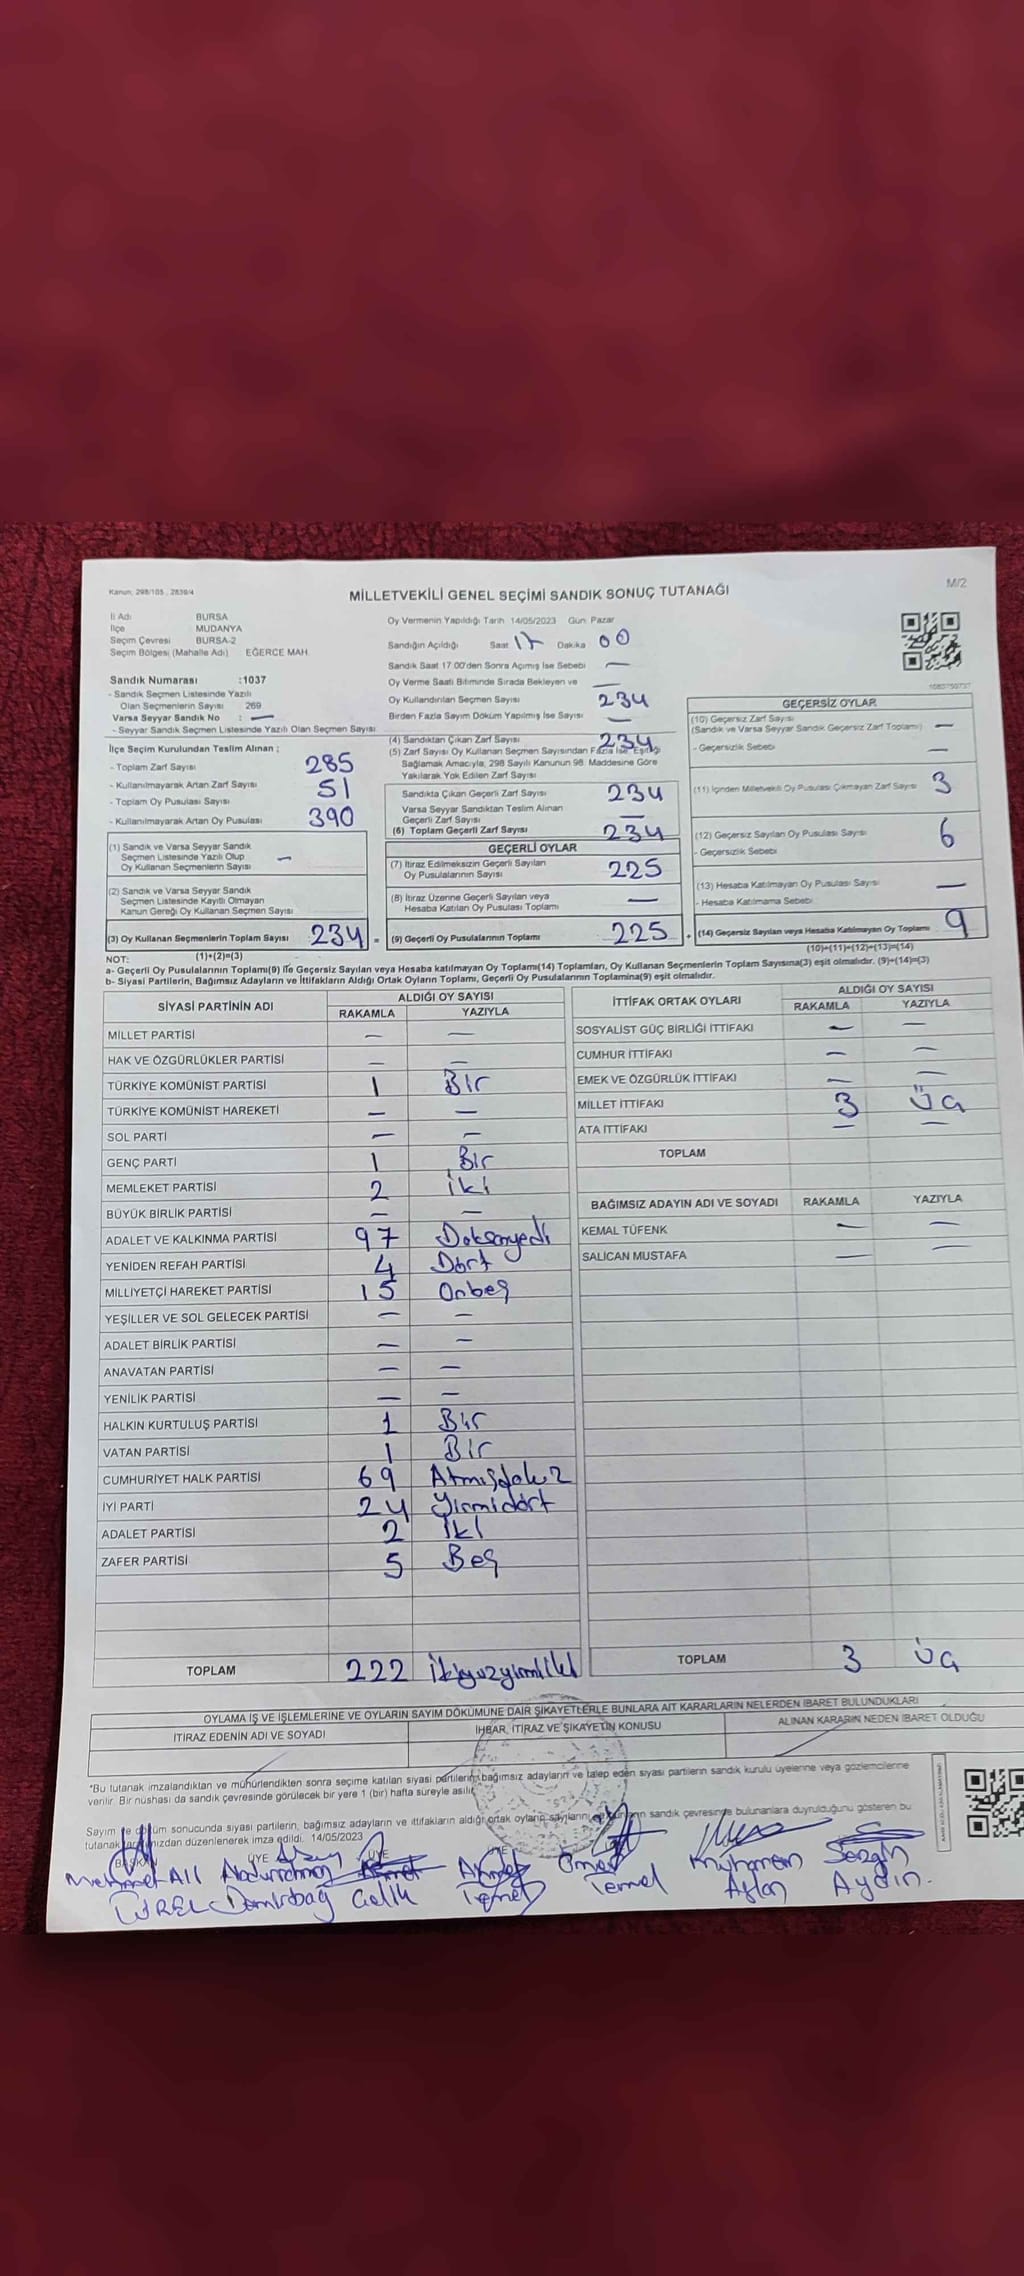 Kanun, 298/105 , 2839/4
MİLLETVEKİLİ GENEL SEÇİMİ SANDIK SONUÇ TUTANAĞI
M/2
İl Adı BURSA
İlçe MUDANYA
Seçim Çevresi BURSA-2
Seçim Bölgesi (Mahalle Adı) EĞERCE MAH.
Sandık Numarası :1037
- Sandık Seçmen Listesinde Yazılı
Olan Seçmenlerin Sayısı 269
Varsa Seyyar Sandık No : —
- Seyyar Sandık Seçmen Listesinde Yazılı Olan Seçmen Sayısı
İlçe Seçim Kurulundan Teslim Alınan ;
- Toplam Zarf Sayısı 285
- Kullanılmayarak Artan Zarf Sayısı 51
- Toplam Oy Pusulası Sayısı 390
- Kullanılmayarak Artan Oy Pusulası
(1) Sandık ve Varsa Seyyar Sandık
Seçmen Listesinde Yazılı Olup
Oy Kullanan Seçmenlerin Sayısı —
(2) Sandık ve Varsa Seyyar Sandık
Seçmen Listesinde Kayıtlı Olmayan
Kanun Gereği Oy Kullanan Seçmen Sayısı
(3) Oy Kullanan Seçmenlerin Toplam Sayısı 234 =
(1)+(2)=(3)
Oy Vermenin Yapıldığı Tarih 14/05/2023 Gün: Pazar
Sandığın Açıldığı Saat 17 Dakika 00
Sandık Saat 17.00'den Sonra Açımış İse Sebebi —
Oy Verme Saati Bitiminde Sırada Bekleyen ve —
Oy Kullandırılan Seçmen Sayısı 234
Birden Fazla Sayım Döküm Yapılmış İse Sayısı —
(4) Sandıktan Çıkan Zarf Sayısı 234
(5) Zarf Sayısı Oy Kullanan Seçmen Sayısından Fazla İse Eşitliği
Sağlamak Amacıyla, 298 Sayılı Kanunun 98. Maddesine Göre
Yakılarak Yok Edilen Zarf Sayısı
Sandıkta Çıkan Geçerli Zarf Sayısı 234
Varsa Seyyar Sandıktan Teslim Alınan
Geçerli Zarf Sayısı —
(6) Toplam Geçerli Zarf Sayısı 234
GEÇERLİ OYLAR
(7) İtiraz Edilmeksizin Geçerli Sayılan
Oy Pusulalarının Sayısı 225
(8) İtiraz Üzerine Geçerli Sayılan veya
Hesaba Katılan Oy Pusulası Toplamı —
(9) Geçerli Oy Pusulalarının Toplamı 225 +
1683759737
GEÇERSİZ OYLAR
(10) Geçersiz Zarf Sayısı
(Sandık ve Varsa Seyyar Sandık Geçersiz Zarf Toplamı) —
- Geçersizlik Sebebi —
(11) İçinden Milletvekili Oy Pusulası Çıkmayan Zarf Sayısı 3
(12) Geçersiz Sayılan Oy Pusulası Sayısı 6
- Geçersizlik Sebebi
(13) Hesaba Katılmayan Oy Pusulası Sayısı —
- Hesaba Katılmama Sebebi
(14) Geçersiz Sayılan veya Hesaba Katılmayan Oy Toplamı 9
(10)+(11)+(12)+(13)=(14)
NOT:
a- Geçerli Oy Pusulalarının Toplamı(9) ile Geçersiz Sayılan veya Hesaba katılmayan Oy Toplamı(14) Toplamları, Oy Kullanan Seçmenlerin Toplam Sayısına(3) eşit olmalıdır. (9)+(14)=(3)
b- Siyasi Partilerin, Bağımsız Adayların ve İttifakların Aldığı Oyların Toplamı, Geçerli Oy Pusulalarının Toplamına(9) eşit olmalıdır.
SİYASİ PARTİNİN ADI ALDIĞI OY SAYISI
RAKAMLA YAZIYLA
MİLLET PARTİSİ — —
HAK VE ÖZGÜRLÜKLER PARTİSİ — —
TÜRKİYE KOMÜNİST PARTİSİ 1 Bir
TÜRKİYE KOMÜNİST HAREKETİ — —
SOL PARTİ — —
GENÇ PARTİ 1 Bir
MEMLEKET PARTİSİ 2 iki
BÜYÜK BİRLİK PARTİSİ — —
ADALET VE KALKINMA PARTİSİ 97 Doksanyedi
YENİDEN REFAH PARTİSİ 4 Dört
MİLLİYETÇİ HAREKET PARTİSİ 15 Onbeş
YEŞİLLER VE SOL GELECEK PARTİSİ — —
ADALET BİRLİK PARTİSİ — —
ANAVATAN PARTİSİ — —
YENİLİK PARTİSİ — —
HALKIN KURTULUŞ PARTİSİ 1 Bir
VATAN PARTİSİ 1 Bir
CUMHURİYET HALK PARTİSİ 69 Atmışdokuz
İYİ PARTİ 24 Yirmidört
ADALET PARTİSİ 2 İki
ZAFER PARTİSİ 5 Beş
TOPLAM 222 ikiyüzyirmiiki
İTTİFAK ORTAK OYLARI ALDIĞI OY SAYISI
RAKAMLA YAZIYLA
SOSYALİST GÜÇ BİRLİĞİ İTTİFAKI — —
CUMHUR İTTİFAKI — —
EMEK VE ÖZGÜRLÜK İTTİFAKI — —
MİLLET İTTİFAKI 3 Üç
ATA İTTİFAKI — —
TOPLAM
BAĞIMSIZ ADAYIN ADI VE SOYADI RAKAMLA YAZIYLA
KEMAL TÜFENK — —
SALİCAN MUSTAFA — —
TOPLAM 3 Üç
OYLAMA İŞ VE İŞLEMLERİNE VE OYLARIN SAYIM DÖKÜMÜNE DAİR ŞİKAYETLERLE BUNLARA AİT KARARLARIN NELERDEN İBARET BULUNDUKLARI
İTİRAZ EDENİN ADI VE SOYADI İHBAR, İTİRAZ VE ŞİKAYETİN KONUSU ALINAN KARARIN NEDEN İBARET OLDUĞU
"Bu tutanak imzalandıktan ve mühürlendikten sonra seçime katılan siyasi partilerin, bağımsız adayların ve talep eden siyasi partilerin sandık kurulu üyelerine veya gözlemcilerine
verilir. Bir nüshası da sandık çevresinde görülecek bir yere 1 (bir) hafta süreyle asılır.
Sayım ve döküm sonucunda siyasi partilerin, bağımsız adayların ve ittifakların aldığı ortak oyların sayılarını sandık çevresinde bulunanlara duyrulduğunu gösteren bu
tutanak tarafımızdan düzenlenerek imza edildi. 14/05/2023
BAŞKAN ÜYE ÜYE ÜYE
Mehmet Ali Abdurrahman Ahmet Ahmet Ömer Muharrem Sezgin
ÜREL Demirbağ Çelik Temel Temel Aslan Aydın.